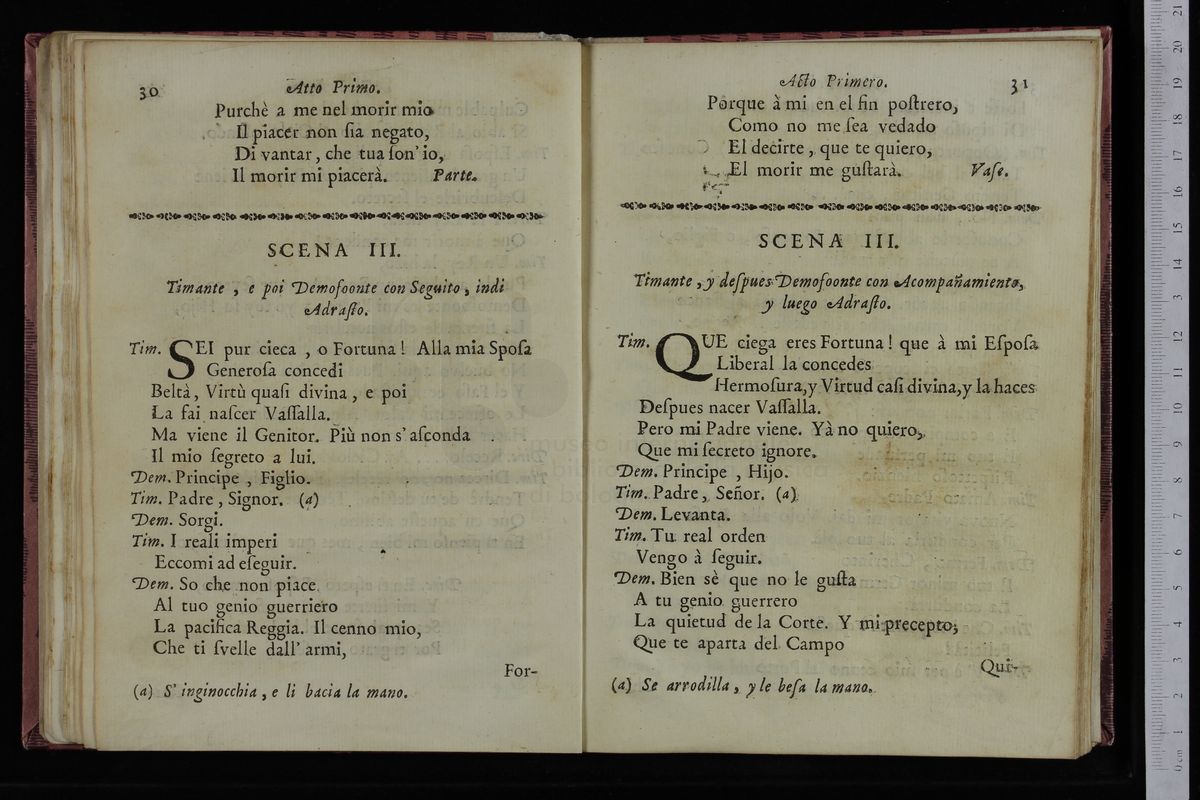 30
Atto Primo.
Purchè a me nel morir mio
Il piacer non ſia negato,
Di vantar, che tua ſon' io,
Il morir mi piacerà. Parte.
SCENA III.
Timante, e poi Demofoonte con Seguito, indi
Adraſto.
Tim. SEI pur cieca, o Fortuna! Alla mia Spoſa
Generoſa concedi
Beltà, Virtù quaſi divina, e poi
La fai naſcer Vaſſalla.
Ma viene il Genitor. Più non s' aſconda
Il mio ſegreto a lui.
Dem. Principe, Figlio.
Tim. Padre, Signor. (a)
Dem. Sorgi.
Tim. I reali imperi
Eccomi ad eſeguir.
Dem. So che non piace
Al tuo genio guerriero
La pacifica Reggia. Il cenno mio,
Che ti ſvelle dall' armi,
For-
(a) S' inginocchia, e li bacia la mano.
Acto Primero.
31
Porque à mi en el fin poſtrero,
Como no me ſea vedado
El decirte, que te quiero,
El morir me guſtarà. Vaſe.
SCENA III.
Timante, y deſpues Demofoonte con Acompañamiento,
y luego Adraſto.
Tim. QUE ciega eres Fortuna! que à mi Eſpoſa
Liberal la concedes
Hermoſura, y Virtud caſi divina, y la haces
Deſpues nacer Vaſſalla.
Pero mi Padre viene. Yà no quiero,
Que mi ſecreto ignore.
Dem. Principe, Hijo.
Tim. Padre, Señor. (a)
Dem. Levanta.
Tim. Tu real orden
Vengo à ſeguir.
Dem. Bien sè que no le guſta
A tu genio guerrero
La quietud de la Corte. Y mi precepto,
Que te aparta del Campo
Qui-
(a) Se arrodilla, y le beſa la mano.